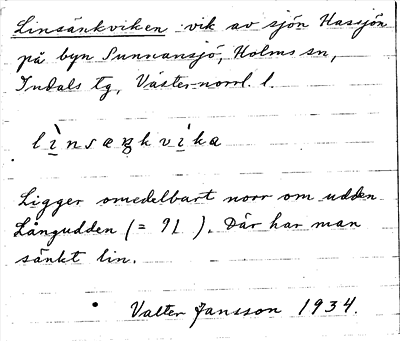 Linsänkviken vik av sjön Hassjön
på byn Sunnansjö, Holms sn,
Indals tg, Västernorrl. l.
lìnsæŋkvìka
Ligger omedelbart norr om udden
Långudden (= 9L ). Där har man
sänkt lin.
Valter Jansson 1934.